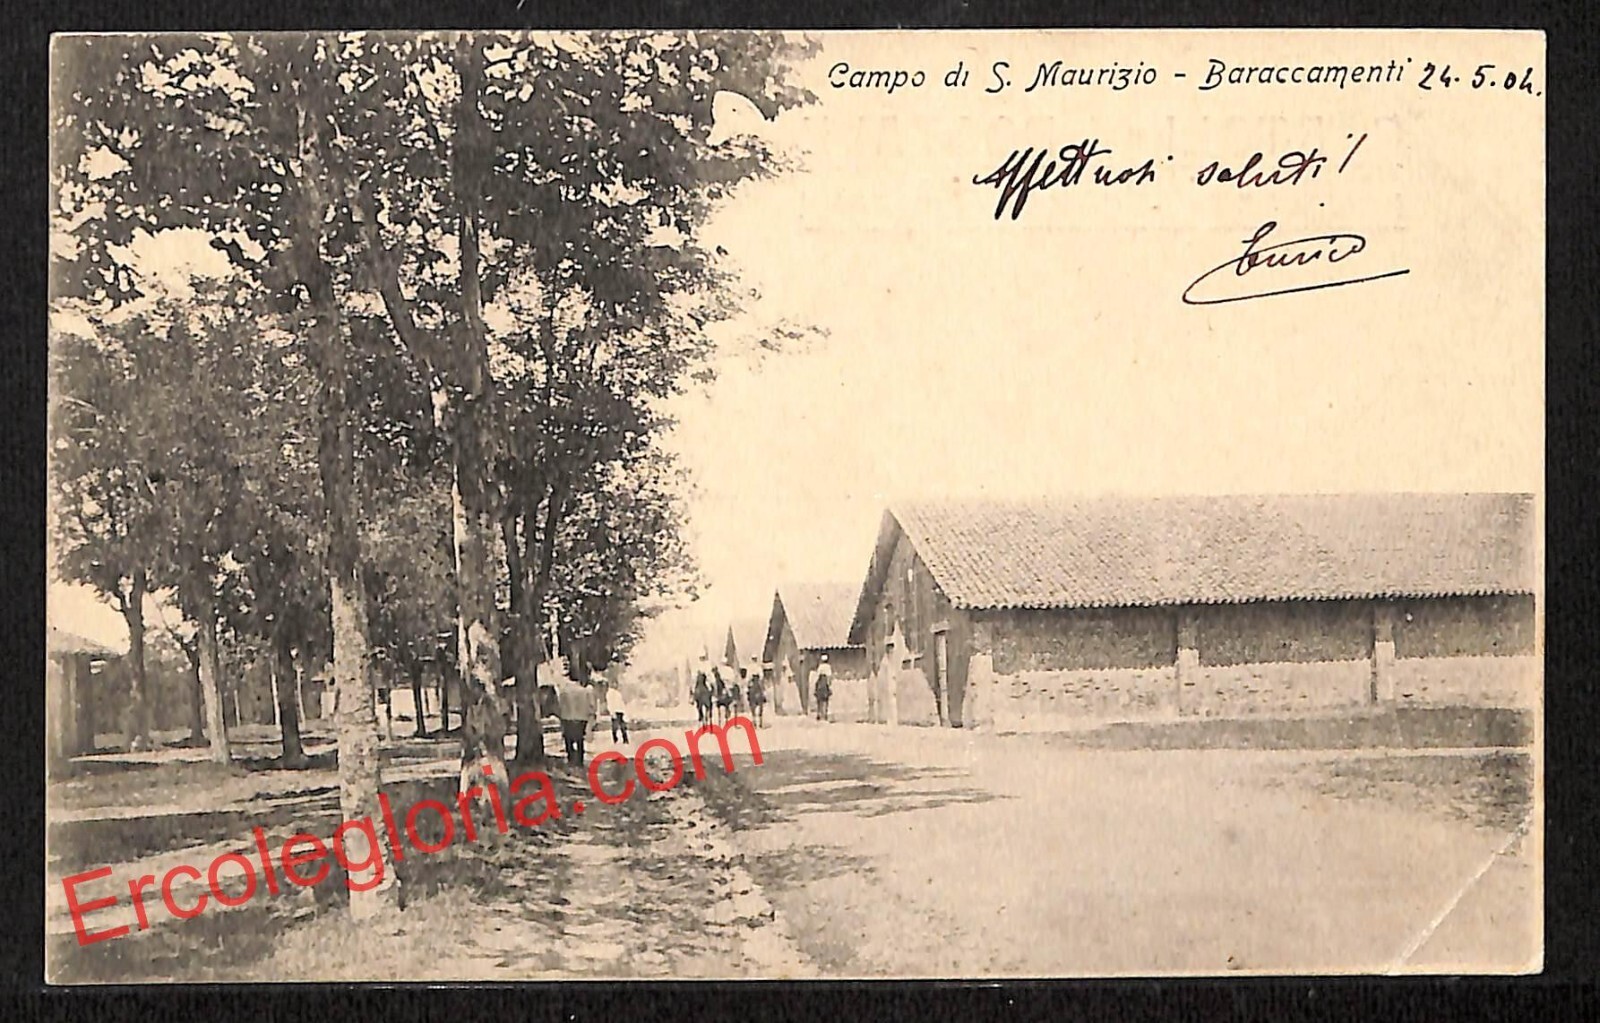 Campo di S. Maurizio - Baraccamenti 24.5.04.
Affettuosi saluti!
Enrico
Ercolegloria.com